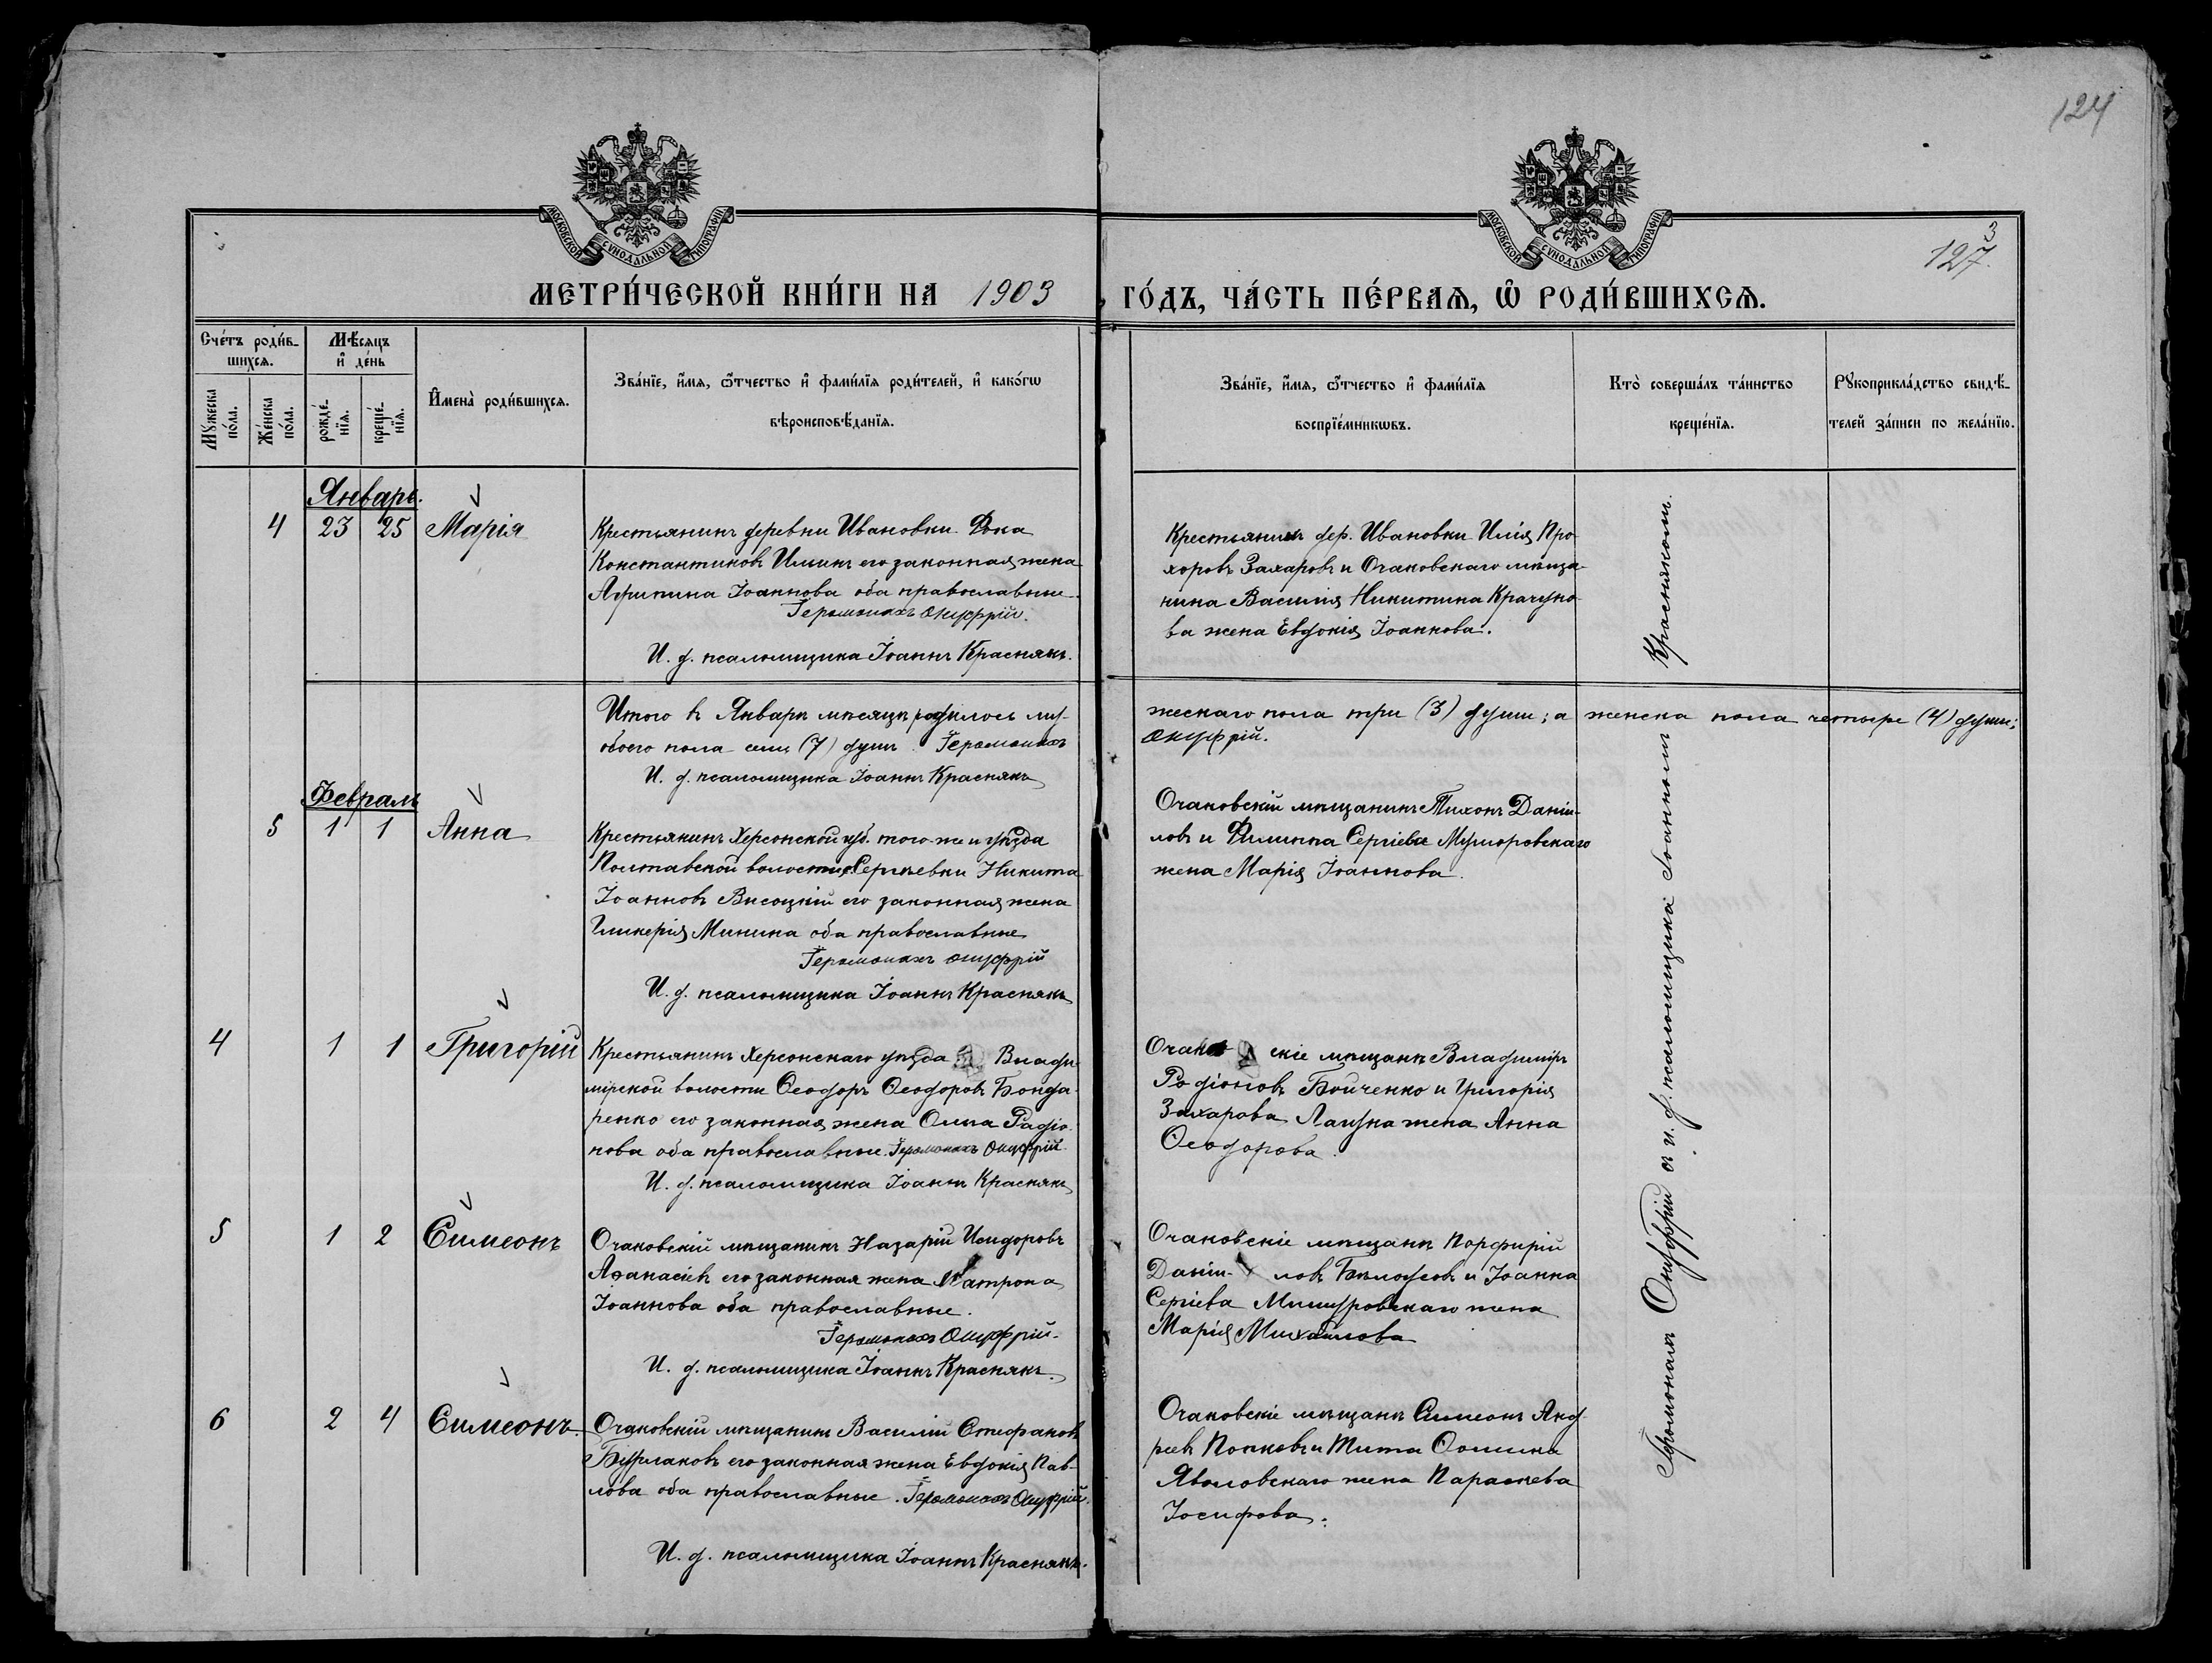 124
МОСКОВСКОЙ СѴНОДАЛЬНОЙ ТИПОГРАФІИ
МОСКОВСКОЙ СѴНОДАЛЬНОЙ ТИПОГРАФІИ
3
127.
МЕТРИ́ЧЕСКОЙ КНИ́ГИ НА 1903 ГО́ДЪ, ЧА́СТЬ ПЕ́РВАѦ, Ѡ҆ РОДИ́ВШИХСѦ.
Сче́тъ роди́в-
шихсѧ.
Мꙋжеска по́ла.
Же́нска по́ла.
Мѣ́сѧцъ
и҆ де́нь
рожде́-
нїѧ.
креще́-
нїѧ.
И҆мена̀ роди́вшихсѧ.
Зва́нїе, и҆́мѧ, ѻ҆́тчество и҆ фами́лїѧ роди́телей, и҆ како́гѡ
вѣроисповѣ́данїѧ.
Зва́нїе, и҆́мѧ, ѻ҆́тчество и҆ фами́лїѧ
воспрїе́мникѡвъ.
Кто̀ соверша́лъ та́инство
креще́нїѧ.
Рꙋкоприкла́дство свидѣ́-
телей за́писи по жела́нїю.
Январь.
4 23 25 Марія
Крестьянинъ деревни Ивановки Фока
Константиновъ Ильинъ его законная жена
Агрипина Іоаннова оба православные
Іеромонахъ Онуфрій.
И. д. псаломщика Іоаннъ Краснякъ.
Крестьянинъ дер. Ивановки Илія Про-
хоровъ Захаровъ и Очаковскаго мѣща-
нина Василія Никитина Крачуно-
ва жена Евдокія Іоаннова.
Итого въ Январѣ мѣсяцѣ родилось му-
жескаго пола три (3) души; а женска пола четыре (4) души;
обоего пола семь (7) душъ. Іеромонахъ
Онуфрій.
И. д. псаломщика Іоаннъ Краснякъ
Февраль
5 1 1 Анна
Крестьянинъ Херсонской губ. того-же и уѣзда
Полтавской волости с. Сергѣевки Никита
Іоанновъ Висоцкій его законная жена
Гликерія Минина оба православные
Іеромонахъ Онуфрій
И. д. псаломщика Іоаннъ Краснякъ
Очаковскій мѣщанинъ Тихонъ Даніи-
ловъ и Филиппа Сергіева
жена Марія Іоаннова.
4 1 1 Григорій
Крестьянинъ Херсонскаго уѣзда Влади-
мірской волости Ѳеодоръ Ѳеодоровъ Бонда-
ренко его законная жена Ольга Радіо-
нова оба православные. Іеромонахъ Онуфрій
И. д. псаломщика Іоаннъ Краснякъ
Очаковскіе мѣщане Владиміръ
Родіоновъ Бойченко и Григорія
Захарова жена Анна
Ѳеодорова.
5 1 2 Симеонъ
Очаковскій мѣщанинъ Назарій Исидоровъ
Аѳанасіевъ его законная жена Матрона
Іоаннова оба православные.
Іеромонахъ Онуфрій.
И. д. псаломщика Іоаннъ Краснякъ.
Очаковскіе мѣщане Порфирій
Даніи- ловъ и Іоанна
Сергіева жена
Марія Михайлова
6 2 4 Симеонъ
Очаковскій мѣщанинъ Василій Стефановъ
Бурлаковъ его законная жена Евдокія Пав-
лова оба православные. Іеромонахъ Онуфрій.
И. д. псаломщика Іоаннъ Краснякъ.
Очаковскіе мѣщане Симеонъ Анд-
реевъ Попковъ и Тита Ѳомина
жена Параскева
Іосифова.
Іеромонахъ Онуфрій съ и. д. псаломщика Іоанномъ Краснякомъ.